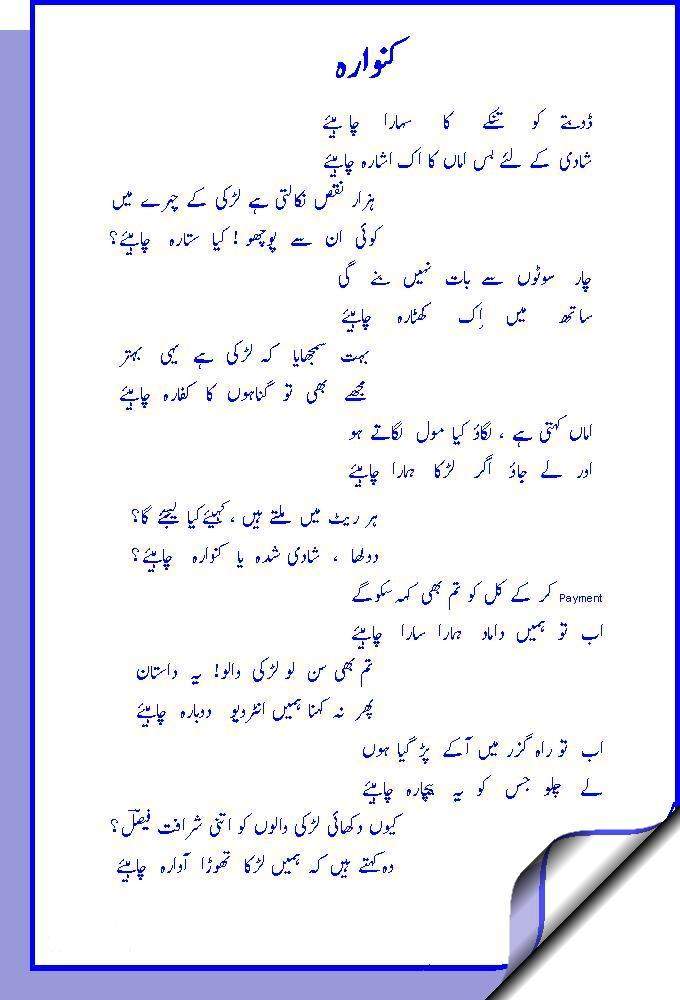 کنوارہ
ڈوبتے کو تنکے کا سہارا چاہیئے
شادی کے لئے بس اماں کا اک اشارہ چاہیئے
ہزار نقص نکالتی ہے لڑکی کے چہرے میں
کوئی ان سے پوچھو ! کیا ستارہ چاہیئے؟
چار سوٹوں سے بات نہیں بنے گی
ساتھ میں اِک کھٹارہ چاہیئے
بہت سمجھایا کہ لڑکی ہے یہی بہتر
مجھے بھی تو گناہوں کا کفارہ چاہیئے
اماں کہتی ہے ، لگاؤ کیا مول لگاتے ہو
اور لے جاؤ اگر لڑکا ہمارا چاہیئے
ہر ریٹ میں ملتے ہیں ، کہیئے کیا لیجئے گا؟
دولھا ، شادی شدہ یا کنوارہ چاہیئے؟
Payment کر کے کل کو تم بھی کہہ سکوگے
اب تو ہمیں داماد ہمارا سارا چاہیئے
تم بھی سن لو لڑکی والو! یہ داستان
پھر نہ کہنا ہمیں انٹرویو دوبارہ چاہیئے
اب تو راہ گزر میں آکے پڑ گیا ہوں
لے چلو جس کو یہ بیچارہ چاہیئے
کیوں دکھائی لڑکی والوں کو اتنی شرافت فیصلؔ؟
وہ کہتے ہیں کہ ہمیں لڑکا تھوڑا آوارہ چاہیئے